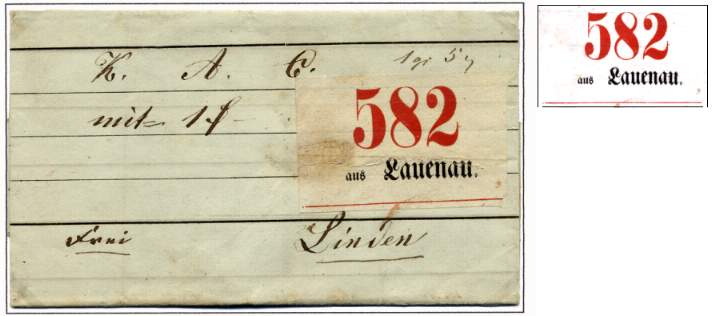 K. A. C.
1 gr 5 
mit 1
582
aus Lauenau.
Frei
Linden
582
aus Lauenau.